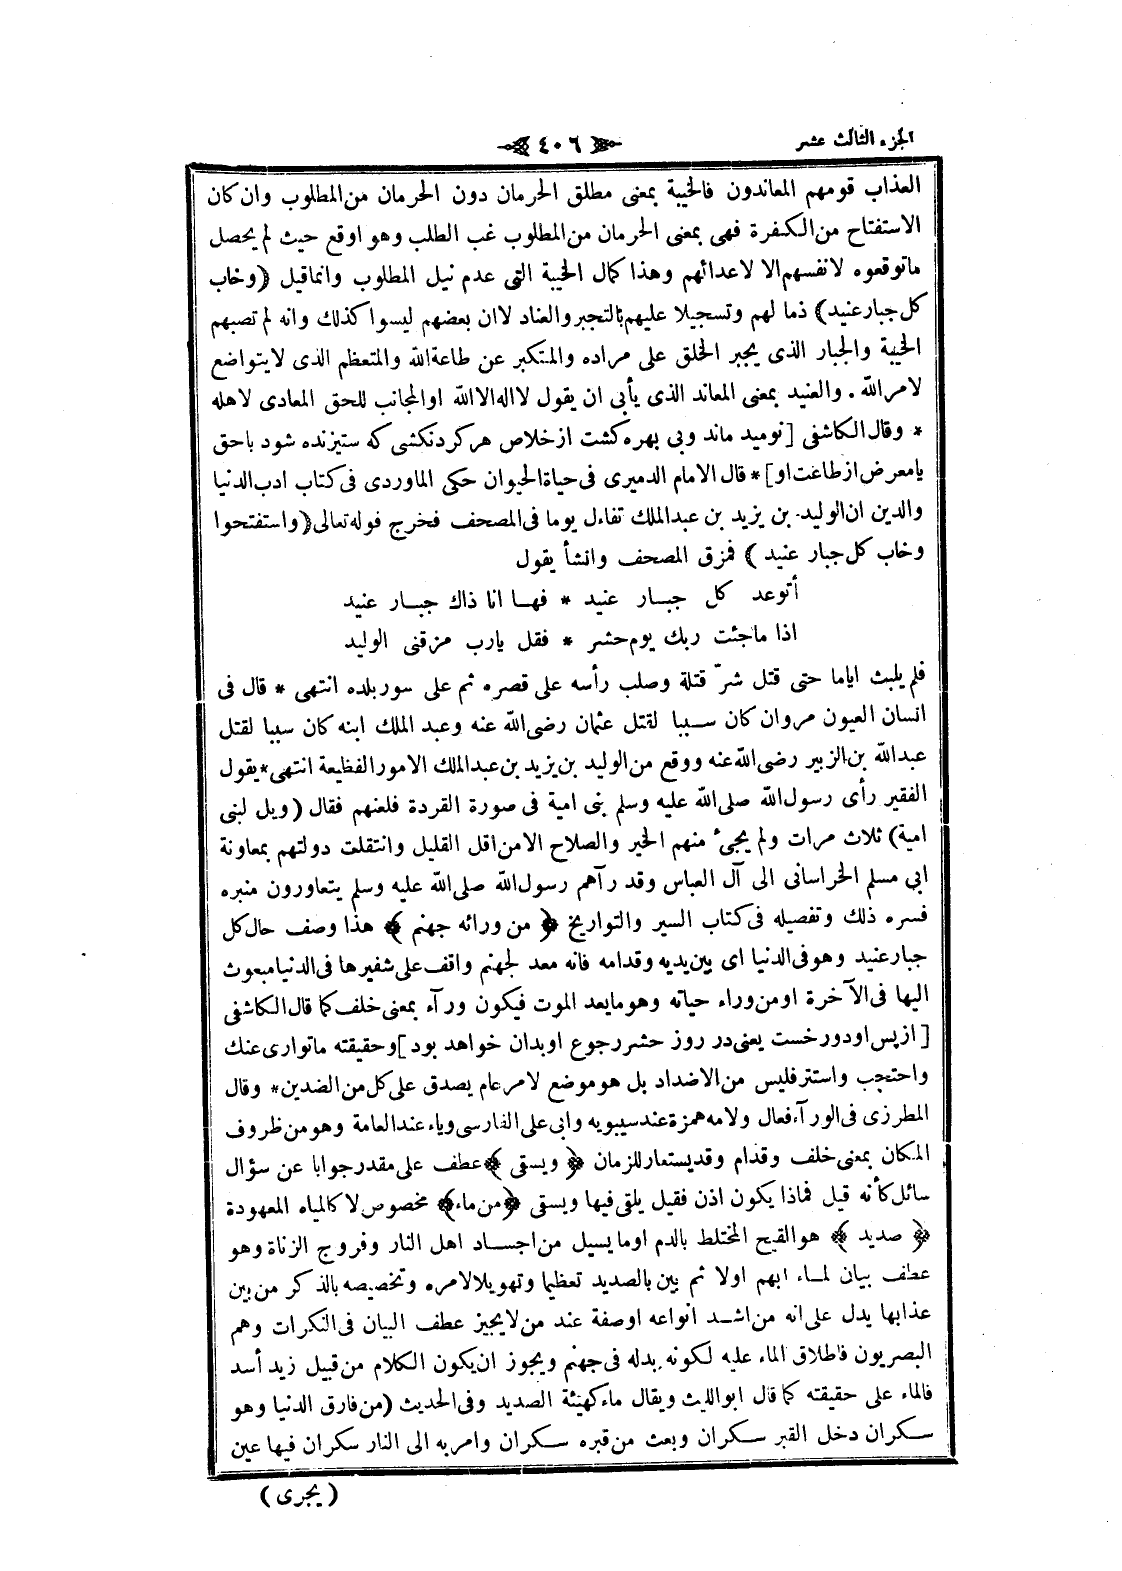 الجزء الثالث عشر
٤٠٦
العذاب قومهم المعاندون فالخيبة بمعنى مطلق الحرمان دون الحرمان من المطلوب وان كان
الاستفتاح من الكفرة فهى بمعنى الحرمان من المطلوب غب الطلب وهو اوقع حيث لم يحصل
ماتوقعوه لانفسهم الا لاعدائهم وهذا كمال الخيبة التى عدم نيل المطلوب وانما قيل (وخاب
كل جبار عنيد) ذما لهم وتسجيلا عليهم بالتجبر والعناد لا ان بعضهم ليسوا كذلك وانه لم تصبهم
الخيبة والجبار الذى يجبر الخلق على مراده والمتكبر عن طاعة الله والمتعظم الذى لا يتواضع
لامر الله . والعنيد بمعنى المعاند الذى يأبى ان يقول لا اله الا الله او المجانب للحق المعادى لاهله
* وقال الكاشفى [نوميد ماند وبى بهره كشت از خلاص هر كردنكشى كه ستيزنده شود باحق
يا معرض از طاعت او] * قال الامام الدميرى فى حياة الحيوان حكى الماوردى فى كتاب ادب الدنيا
والدين ان الوليد بن يزيد بن عبد الملك تفاءل يوما فى المصحف فخرج قوله تعالى (واستفتحوا
وخاب كل جبار عنيد) فمزق المصحف وانشأ يقول
أتوعد كل جبار عنيد * فها انا ذاك جبار عنيد
اذا ماجئت ربك يوم حشر * فقل يارب مزقنى الوليد
فلم يلبث اياما حتى قتل شرّ قتلة وصلب رأسه على قصره ثم على سور بلده انتهى * قال فى
انسان العيون مروان كان سببا لقتل عثمان رضى الله عنه وعبد الملك ابنه كان سببا لقتل
عبد الله بن الزبير رضى الله عنه ووقع من الوليد بن يزيد بن عبد الملك الامور الفظيعة انتهى * يقول
الفقير رأى رسول الله صلى الله عليه وسلم بنى امية فى صورة القردة فلعنهم فقال (ويل لبنى
امية) ثلاث مرات ولم يجئ منهم الخير والصلاح الا من اقل القليل وانتقلت دولتهم بمعاونة
ابى مسلم الخراسانى الى آل العباس وقد رآهم رسول الله صلى الله عليه وسلم يتعاورون منبره
فسره ذلك وتفصيله فى كتاب السير والتواريخ ﴿ من ورائه جهنم ﴾ هذا وصف حال كل
جبار عنيد وهو فى الدنيا اى بين يديه وقدامه فانه معد لجهنم واقف على شفيرها فى الدنيا مبعوث
اليها فى الآخرة او من وراء حياته وهو مابعد الموت فيكون ورآء بمعنى خلف كما قال الكاشفى
[از پس او دوزخست يعنى در روز حشر رجوع او بدان خواهد بود] وحقيقته ماتوارى عنك
واحتجب واستتر فليس من الاضداد بل هو موضع لامر عام يصدق على كل من الضدين * وقال
المطرزى فى الورآء فعال ولامه همزة عند سيبويه وابى على الفارسى وياء عند العامة وهو من ظروف
المكان بمعنى خلف وقدام وقد يستعار للزمان ﴿ ويسقى ﴾ عطف على مقدر جوابا عن سؤال
سائل كأنه قيل فماذا يكون اذن فقيل يلقى فيها ويسقى ﴿ من ماء ﴾ مخصوص لا كالمياه المعهودة
﴿ صديد ﴾ هو القيح المختلط بالدم او ما يسيل من اجساد اهل النار وفروج الزناة وهو
عطف بيان لماء ابهم اولا ثم بين بالصديد تعظيما وتهويلا لامره وتخصيصه بالذكر من بين
عذابها يدل على انه من اشد انواعه او صفة عند من لا يجيز عطف البيان فى النكرات وهم
البصريون فاطلاق الماء عليه لكونه بدله فى جهنم ويجوز ان يكون الكلام من قبيل زيد أسد
فالماء على حقيقته كما قال ابو الليث ويقال ماء كهيئة الصديد وفى الحديث (من فارق الدنيا وهو
سكران دخل القبر سكران وبعث من قبره سكران وامر به الى النار سكران فيها عين
(يجرى)